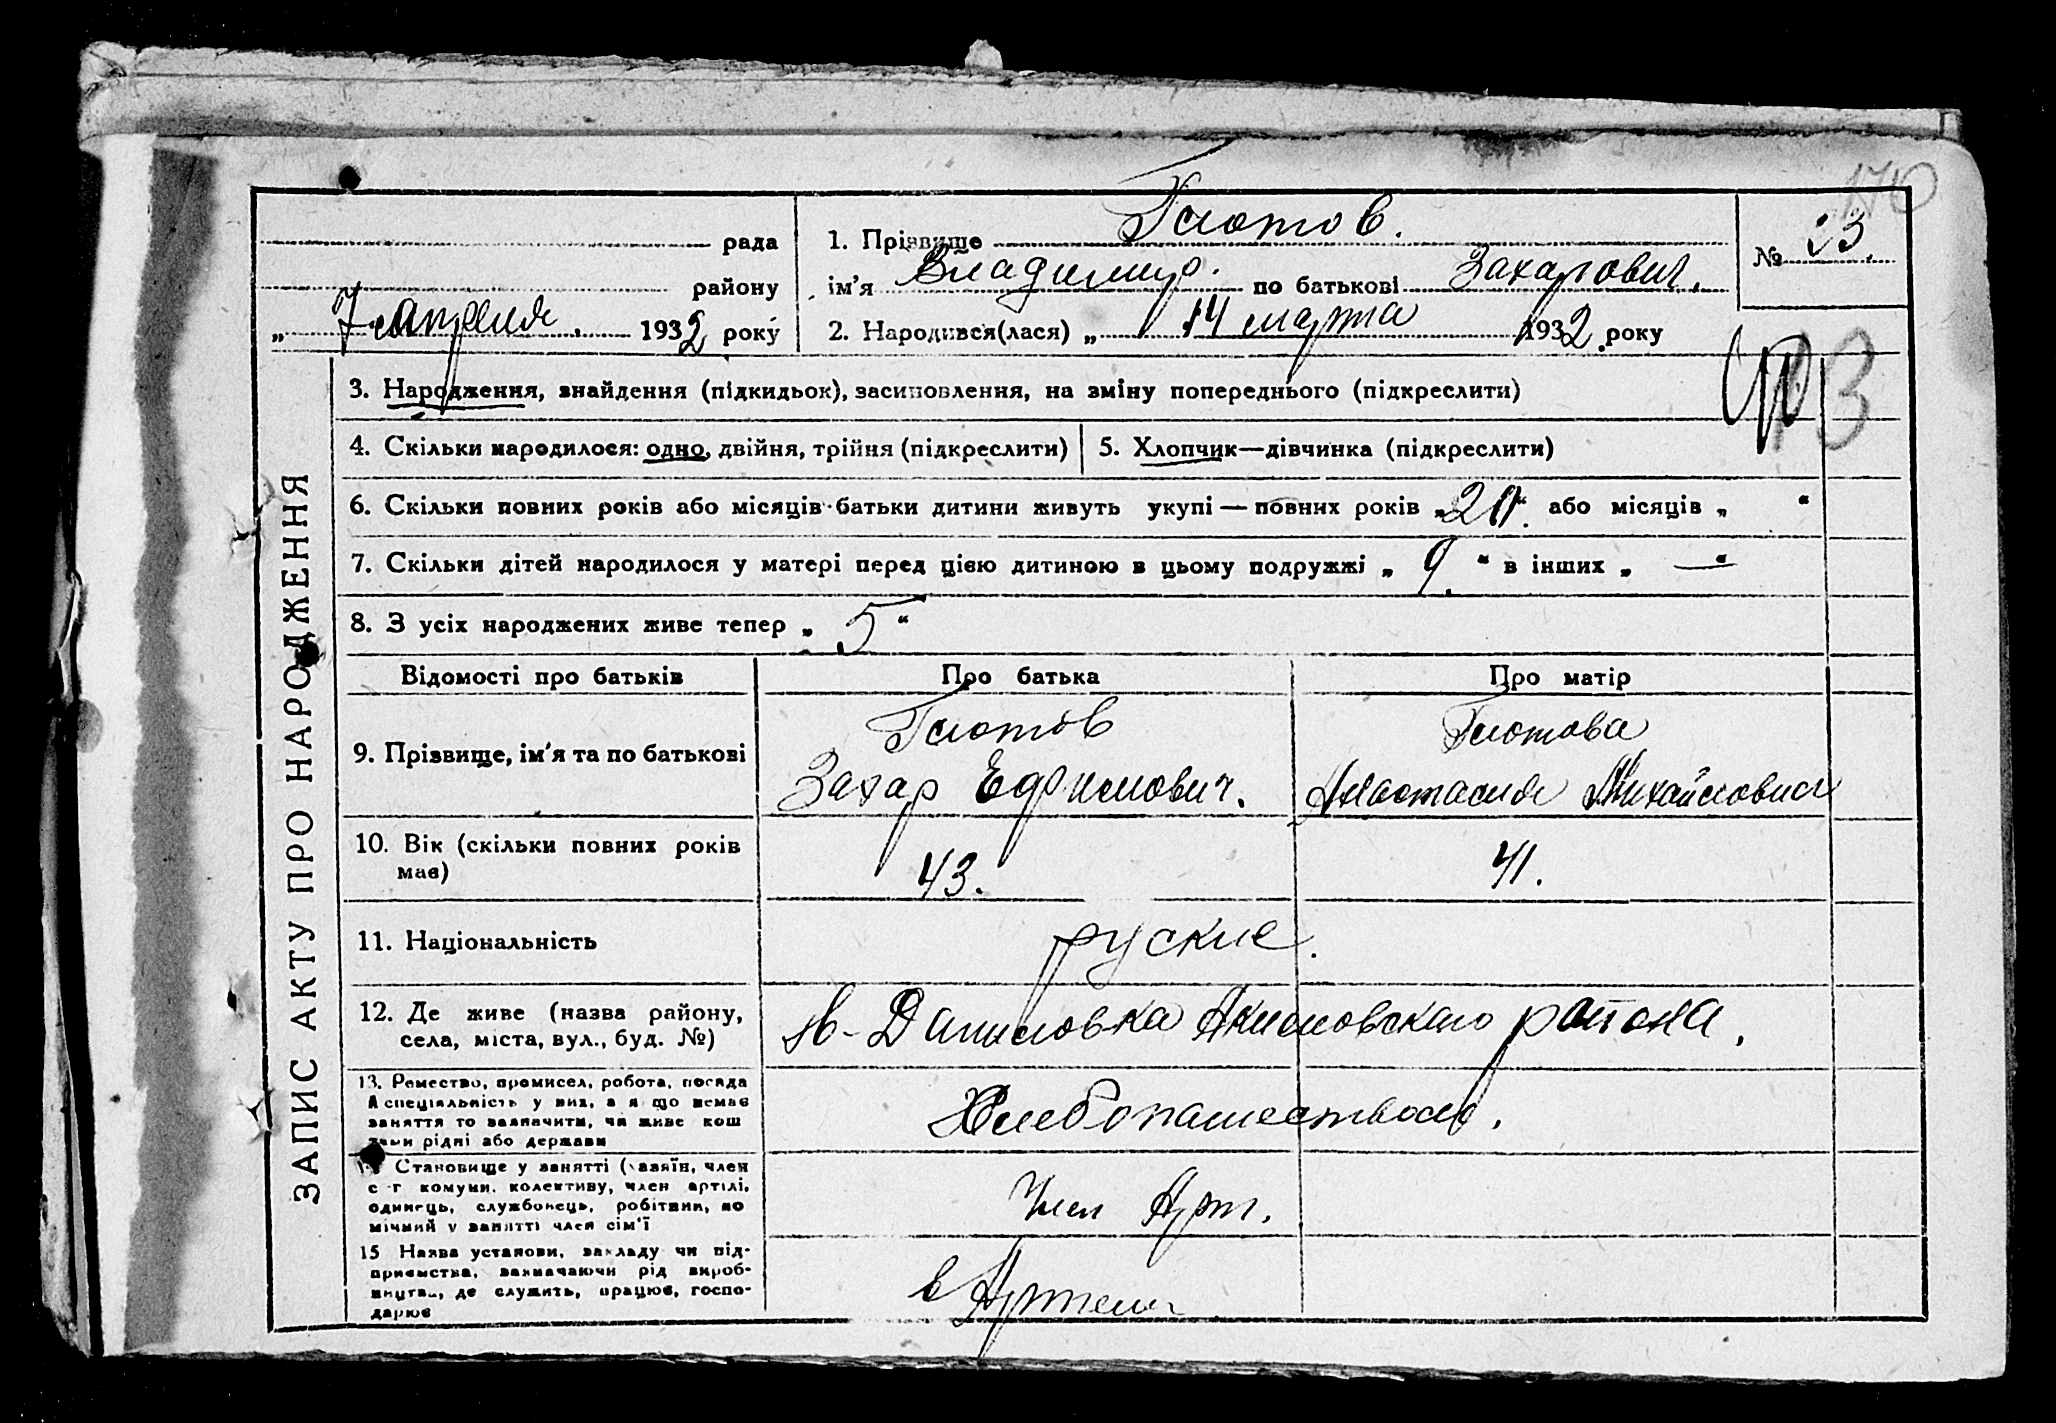 170
рада
району
„ 7 апреля. 1932 року
1. Прізвище Глотов.
ім'я Владимир. по батькові Захарович.
2. Народився(лася) „ 14 марта 1932 року
№ 23.
3. Народження, знайдення (підкидьок), засиновлення, на зміну попереднього (підкреслити)
13
4. Скільки народилося: одно, двійня, трійня (підкреслити)
5. Хлопчик—дівчинка (підкреслити)
6. Скільки повних років або місяців батьки дитини живуть укупі — повних років „ або місяців „ “
7. Скільки дітей народилося у матері перед цією дитиною в цьому подружжі „ 9. “ в інших „ — “
8. З усіх народжених живе тепер „ 5 “
ЗАПИС АКТУ ПРО НАРОДЖЕННЯ
Відомості про батьків
Про батька
Про матір
9. Прізвище, ім'я та по батькові
Глотов
Захар Ефимович.
Глотова
Анастасия Михайловна
10. Вік (скільки повних років
має)
43.
41.
11. Національність
руские.
12. Де живе (назва району,
села, міста, вул., буд. №)
Н-Даниловка Акимовскаго района.
13. Ремество, промисел, робота, посада
й спеціяльність у них, а якщо немає
заняття то зазначити, чи живе кош
тами рідні або держави
Хлебопашеством.
14 Становище у занятті (хазяїн, член
с-г комуни, колективу, член артілі,
одинець, службовець, робітник, по
мічний у занятті член сім'ї
Член Арт.
15 Назва установи, закладу чи під-
приємства, зазначаючи рід вироб-
ництва, де служить, працює, госпо-
дарює
в Артели